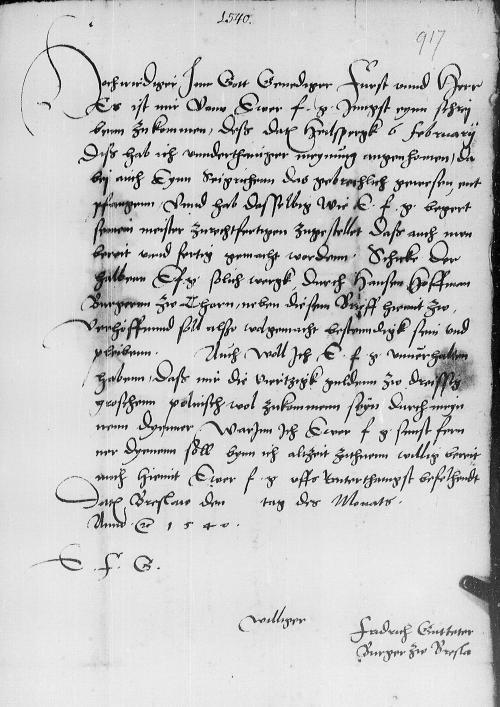 1540.
917
Hochwirdiger Inn Gott Genediger Furst unnd Herr
Es ist mir vonn Ewer f. g. Jungst eynn schrei
benn zukommen, dess dat Heilspergk 6 february
diss hab ich unndertheniger meynung angenhomen, da
bei auch Eynn Seigerichenn das gebrechlich gewesen ent
pfangenn, Unnd hab dasselbig wie E. f. g. begert
seinem meister zurechtfertigen zugestellet das auch nun
bereit unnd fertig gemacht wordenn. Schicke der
halbenn E f g. solich wergk, durch Hansen Hoffman
Burgerenn zw Thorn, neben diesem Brieff hiemit zw,
verhoffennd soll alsso wolgemacht bestenndigk sein und
pleibenn. Auch woll Ich E. f. g. unuerhalten
habenn, dass mir die viertzigk guldenn zw dreissig
groschenn polnisch, wol zukommenn seyn durch mey
nenn dyenner. Warjnn Ich Ewer f g sunst fern
ner dyenenn soll bynn ich altzeit zuthuenn willig bereit
mich hiemit Ewer f. g. uffs unterthenigst befelhendt
Dat Breslaw den tag des Monats.
Anno 1540.
E. F. G.
williger
Fridrich Gutteter
Burger zw Bresla